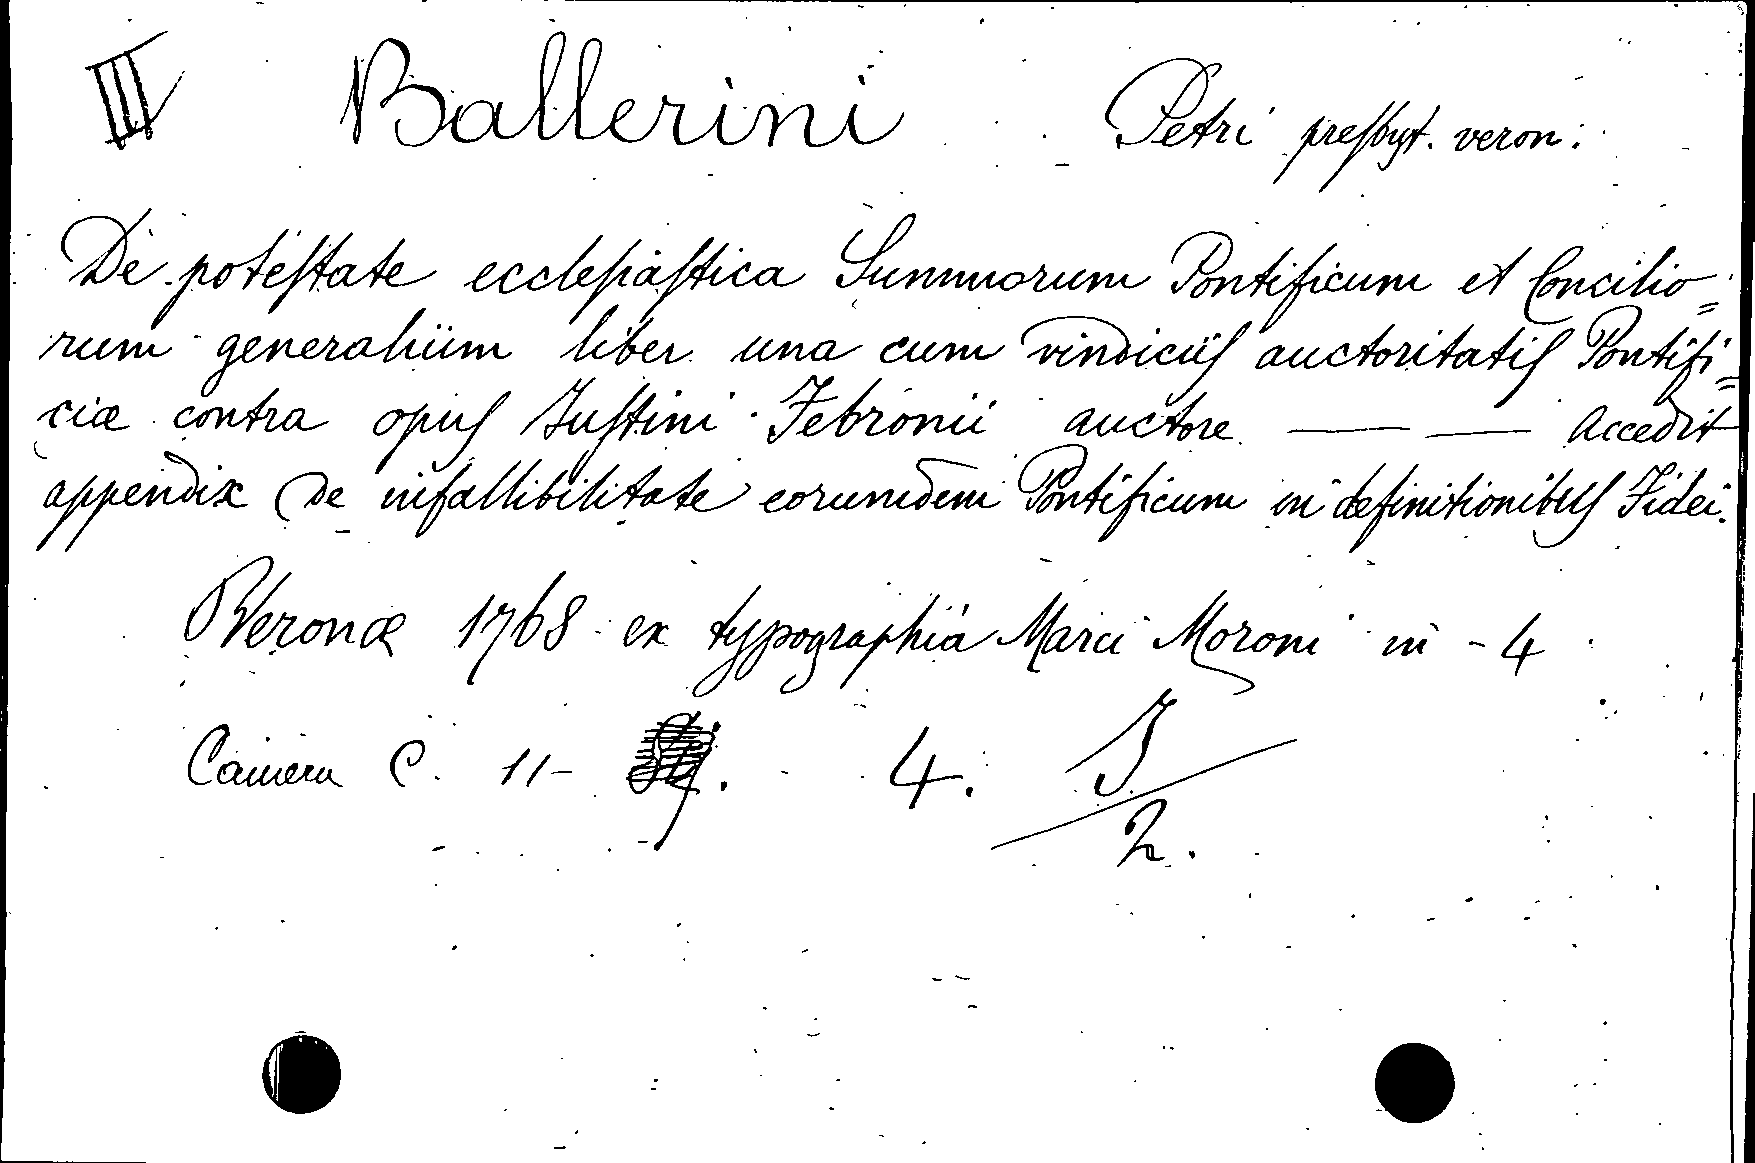 III Ballerini Petri presbyt. veron:
De potestate ecclesiastica Summorum Pontificum et Concilio=
rum generalium liber una cum vindiciis auctoritatis Pontifi=
ciæ contra opus Justini Febronii auctore — — Accedit
appendix De infallibilitate eorumdem Pontificum in definitionibus Fidei.
Veronæ 1768 ex typographia Marci Moroni in - 4
Camera C. 11- . 4. I/2.